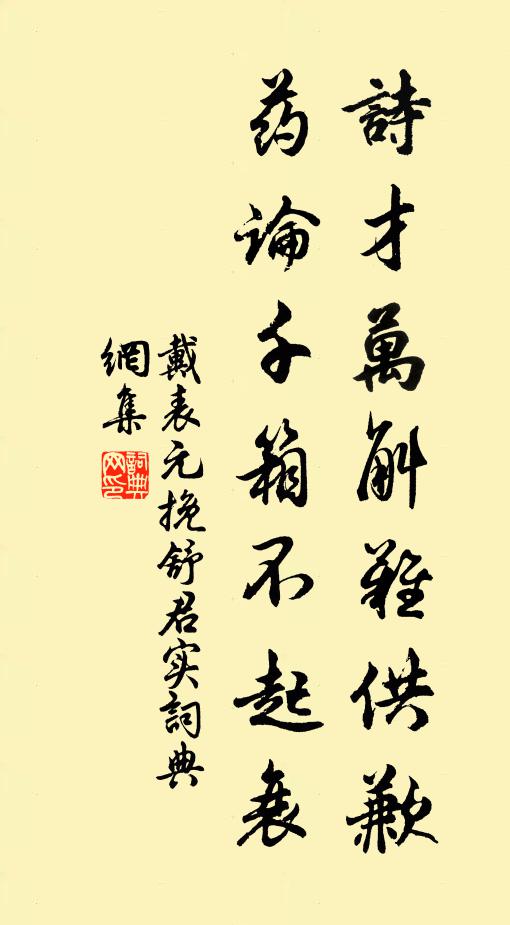 詩才萬斛難供歉
药論千箱不起衰
戴表元挽舒君实詞典
網集
詞典网印